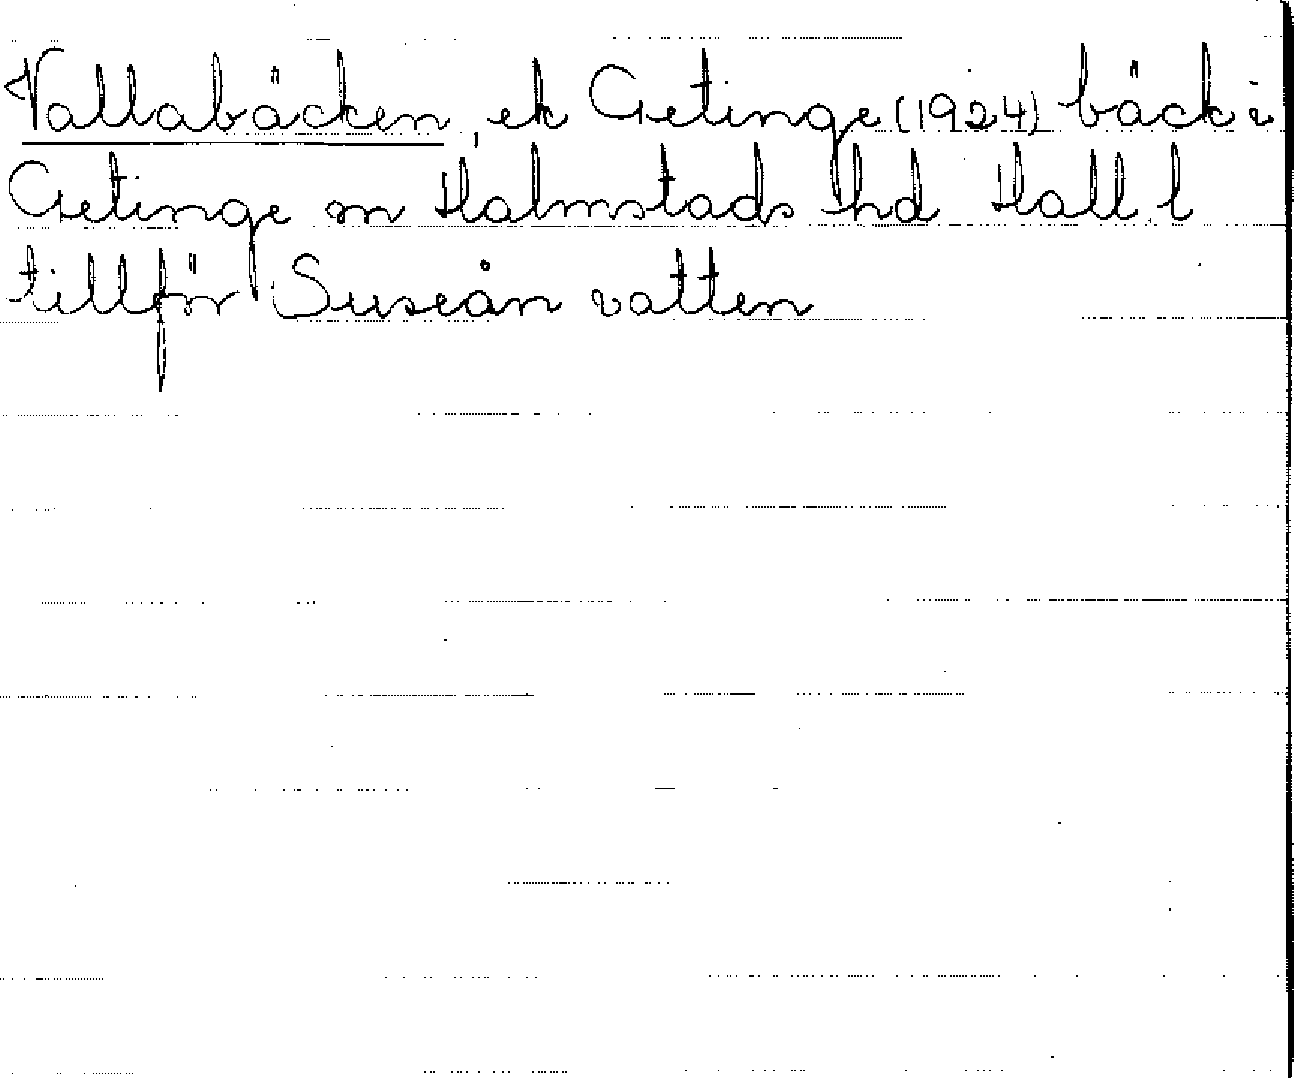 Vallabäcken, ek Getinge (1924) bäck i
Getinge sn Halmstads hd Hall. l
tillför Suseån vatten